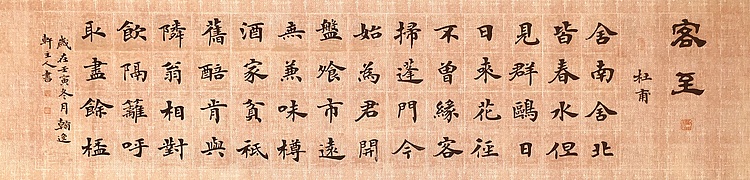 客至
杜甫
舍南舍北
皆春水但
見群鷗日
日來花徑
不曾緣客
掃蓬門今
始為君開
盤飧市遠
無兼味樽
酒家貧祗
舊醅肯與
隣翁相對
飲隔籬呼
取盡餘桮
歲在壬寅冬月翰逸
軒主人書